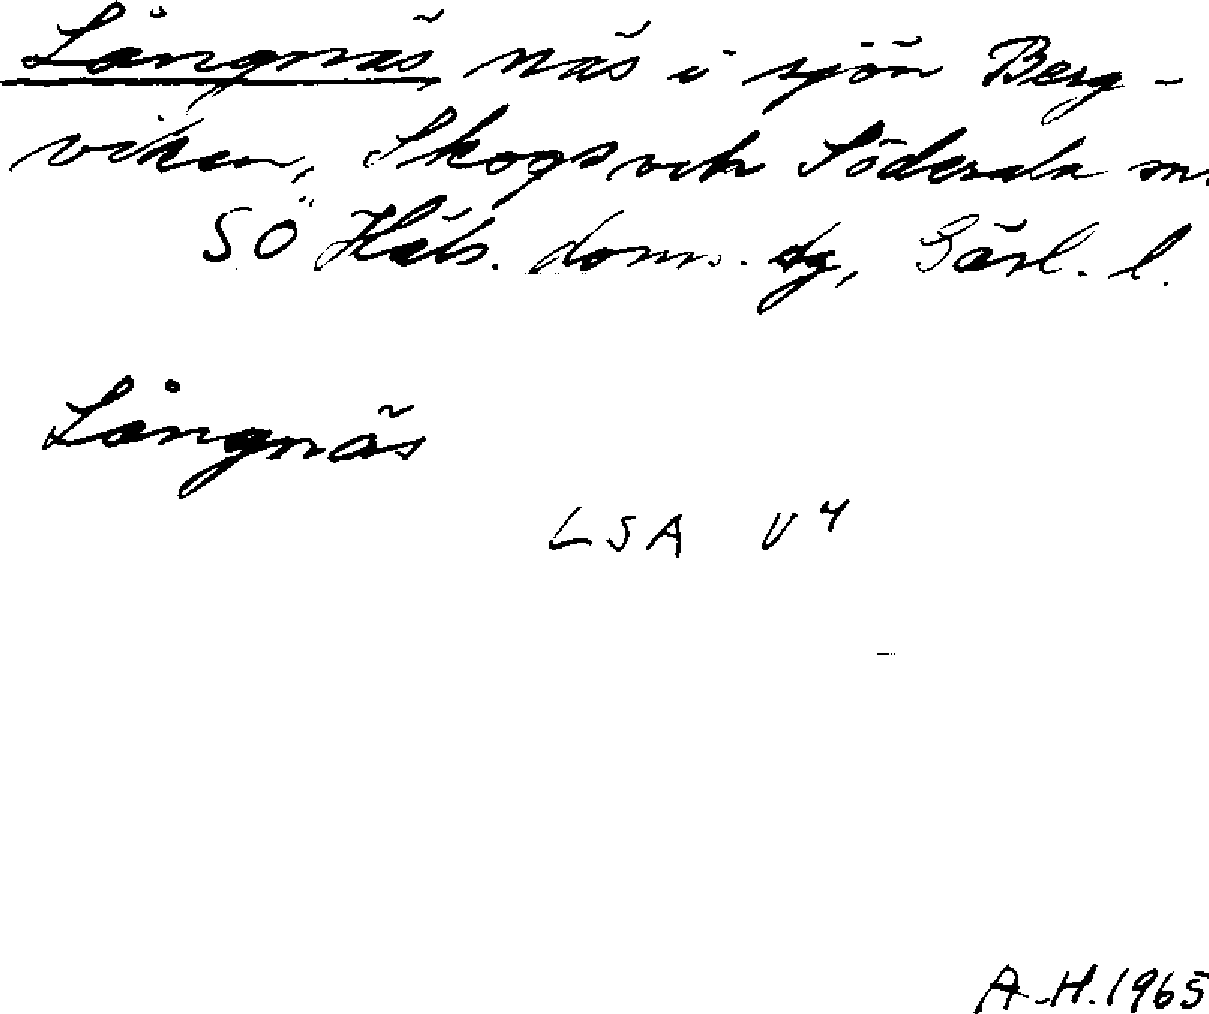 Långnäs, näs i sjön Berg-
viken, Skogs och Söderala snr.
SÖ Häls. doms. dg, Gävl. l.
Långnäs
LSA V4
A.H. 1965